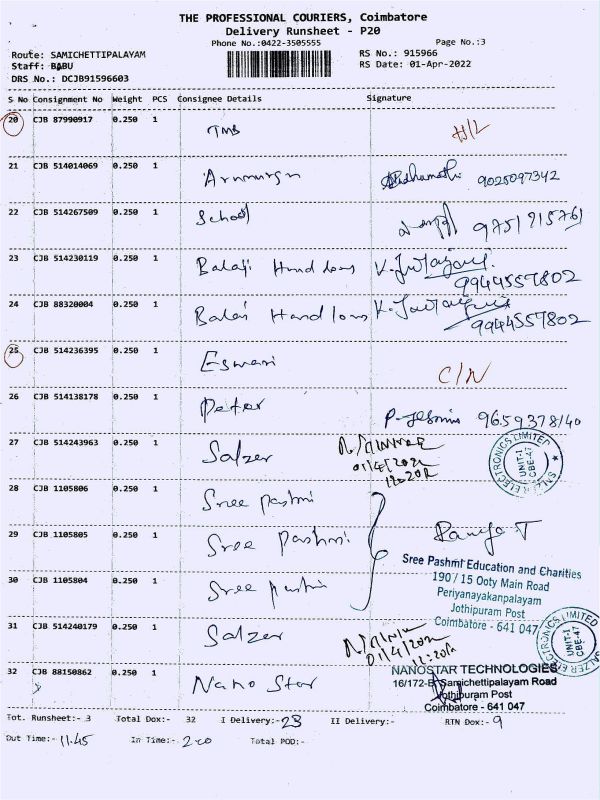 THE PROFESSIONAL COURIERS, Coimbatore
Delivery Runsheet - P20
Phone No.:0422-3505555
Page No.:3
Route: SAMICHETTIPALAYAM
RS No.: 915966
Staff: BABU
RS Date: 01-Apr-2022
DRS No.: DCJB91596603
S No Consignment No Weight PCS Consignee Details Signature
20 CJB 87990917 0.250 1 TMB H/L
21 CJB 514014069 0.250 1 9025097342
22 CJB 514267509 0.250 1 School 9751915761
23 CJB 514230119 0.250 1 Balaji Hand looms
9944557802
24 CJB 88320004 0.250 1 Hand looms
9944557802
25 CJB 514236395 0.250 1 Eswari C/N
26 CJB 514138178 0.250 1 Peter 9659378140
27 CJB 514243963 0.250 1 Salzer
SALZER ELECTRONICS LIMITED
UNIT-I
CBE-47
28 CJB 1105806 0.250 1 Sree Pashmi
29 CJB 1105805 0.250 1 Sree Pashmi
Sree Pashmi Education and Charities
190 / 15 Ooty Main Road
Periyanayakanpalayam
Jothipuram Post
Coimbatore - 641 047
30 CJB 1105804 0.250 1 Sree Pashmi
31 CJB 514240179 0.250 1 Salzer
SALZER ELECTRONICS LIMITED
UNIT-I
CBE-47
32 CJB 88150862 0.250 1 Nano Star
NANOSTAR TECHNOLOGIES
16/172-B, Samichettipalayam Road
Jothipuram Post
Coimbatore - 641 047
Tot. Runsheet:- 3 Total Dox:- 32 I Delivery:- 23 II Delivery:- RTN Dox:- 9
Out Time:- 11.45 In Time:- 2.00 Total POD:-